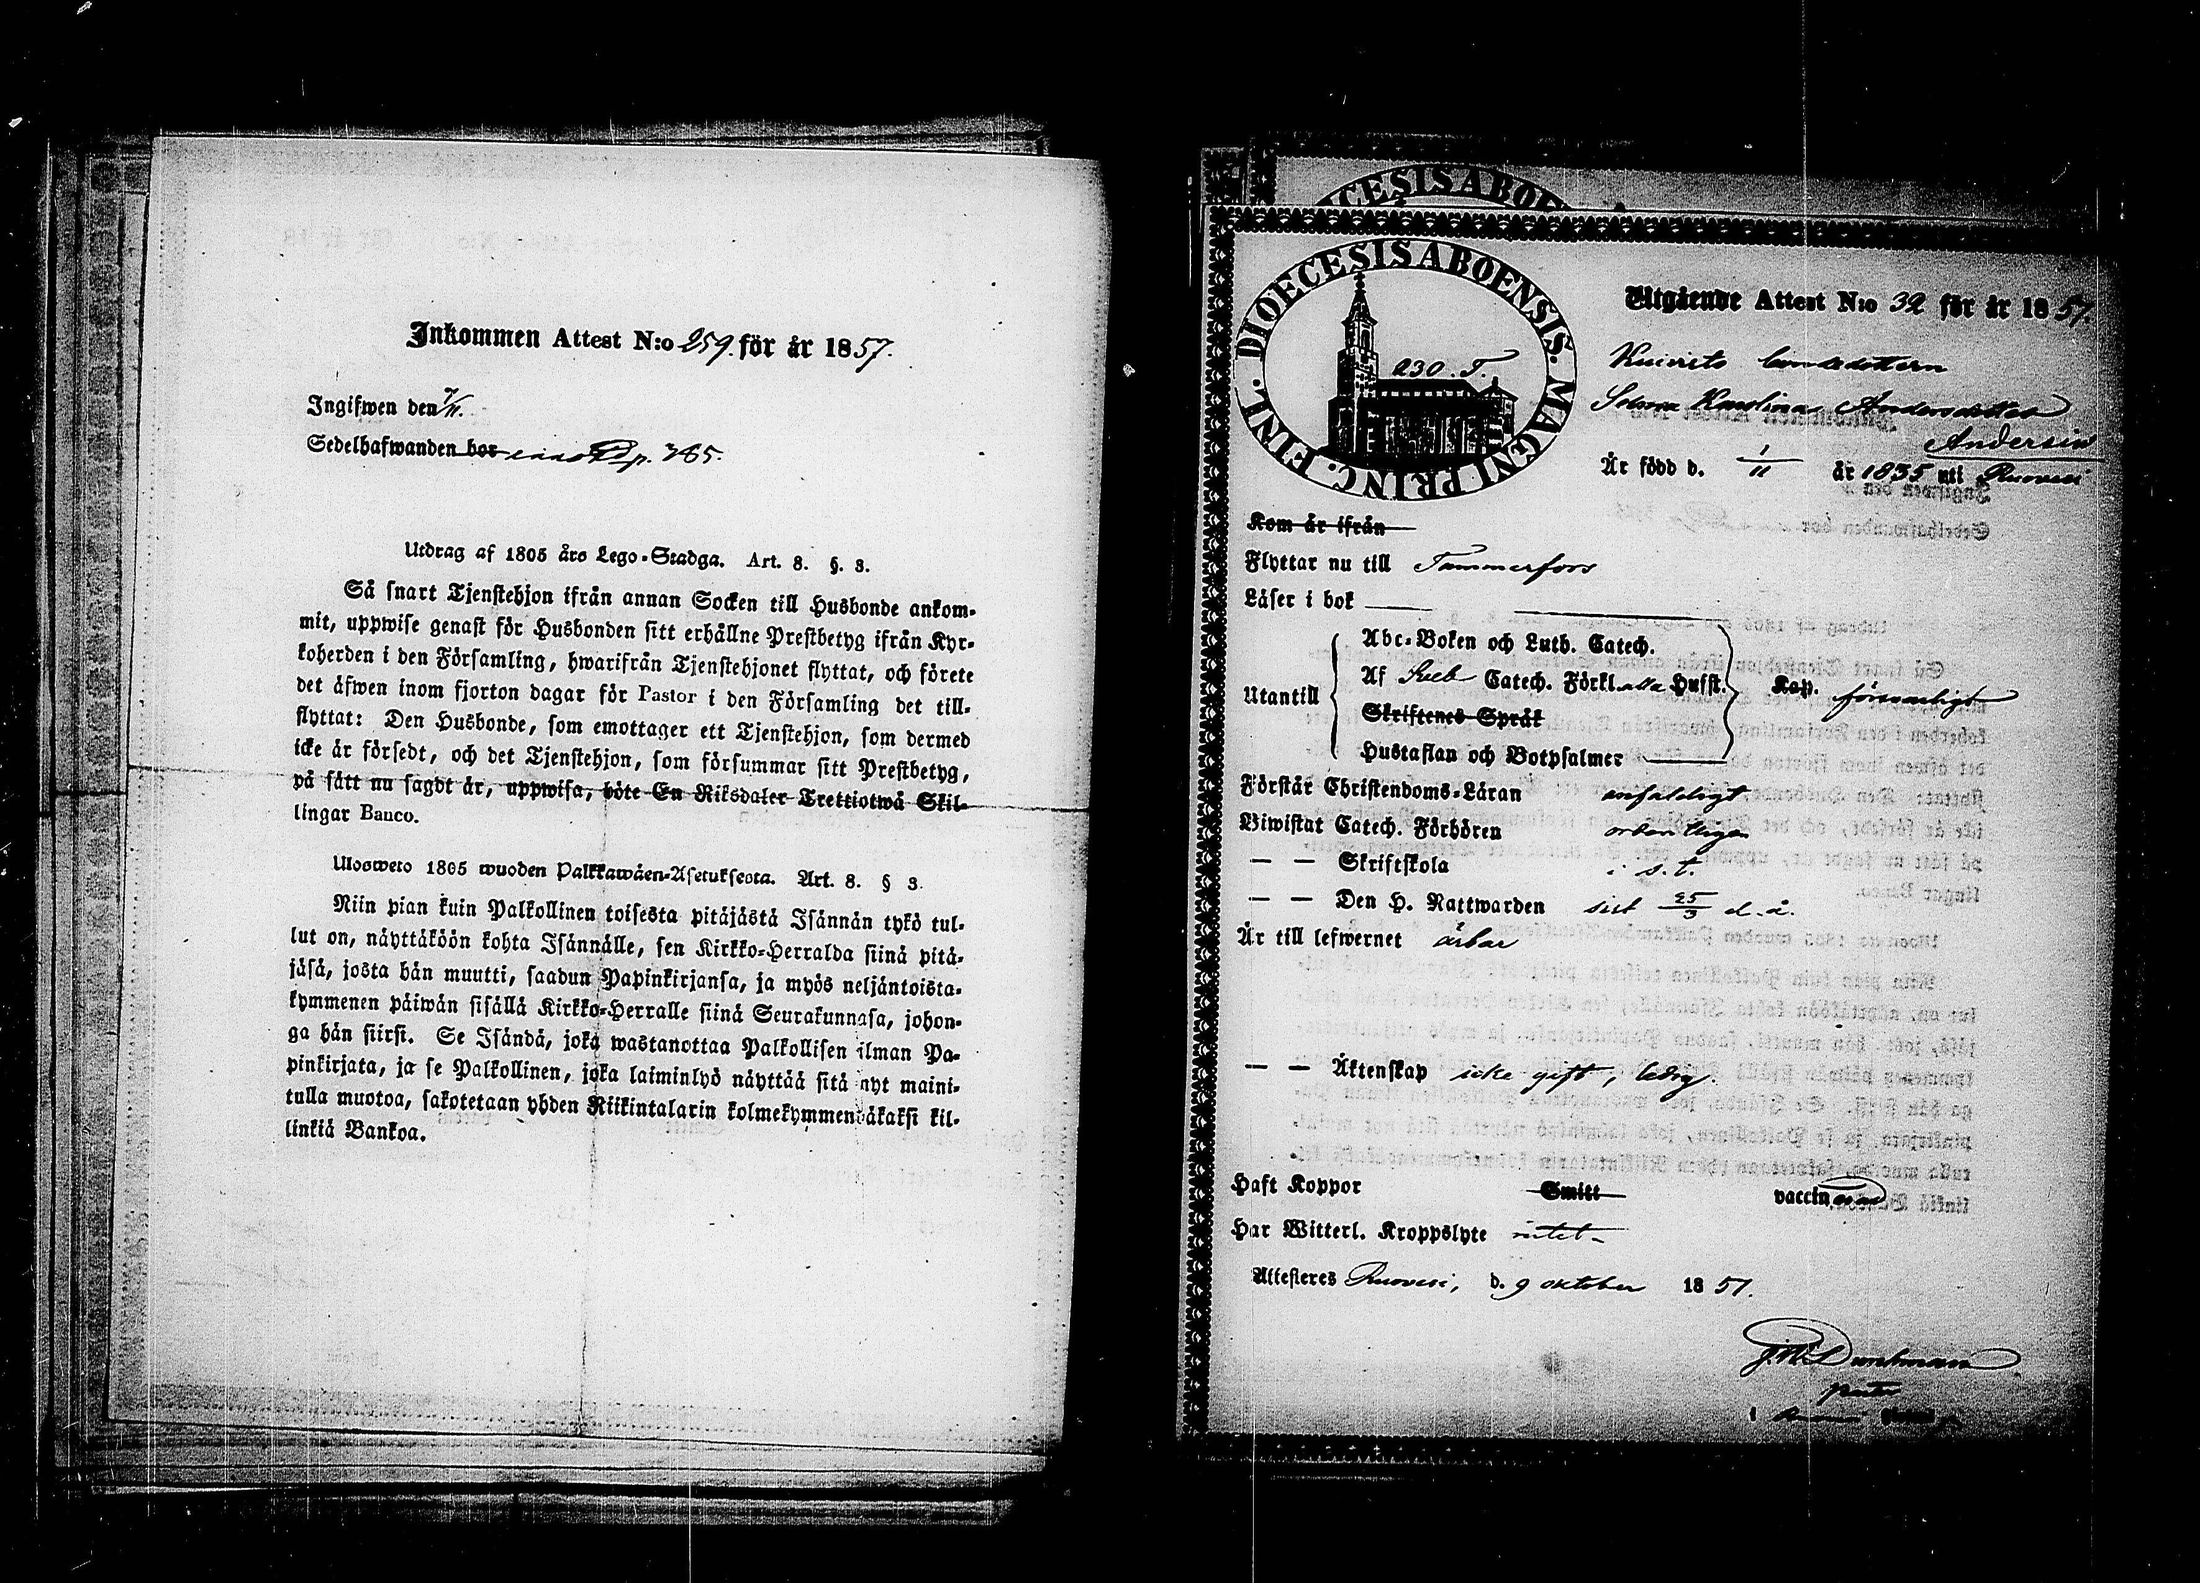 Inkommen Attest N:o 259. för år 1857.
Ingifwen den 7/11.
Sedelhafwanden bor p. 785.
Utdrag af 1805 års Lego-Stadga. Art. 8. §. 3.
Så snart Tjenstehjon ifrån annan Socken till Husbonde ankom-
mit, uppwise genast för Husbonden sitt erhållne Prestbetyg ifrån Kyr-
koherden i den Församling, hwarifrån Tjenstehjonet flyttat, och förete
det äfwen inom fjorton dagar för Pastor i den Församling det till-
flyttat: Den Husbonde, som emottager ett Tjenstehjon, som dermed
icke är försedt, och det Tjenstehjon, som försummar sitt Prestbetyg,
på sätt nu sagdt är, uppwisa, böte En Riksdaler Trettiotwå Skil-
lingar Banco.
Ulosweto 1805 wuoden Palkkawäen-Asetuksesta. Art. 8. § 3.
Niin pian kuin Palkollinen toisesta pitäjästä Isännän tykö tul-
lut on, näyttäköön kohta Isännälle, sen Kirkko-Herralda siinä pitä-
jäsä, josta hän muutti, saadun Papinkirjansa, ja myös neljäntoista-
kymmenen päiwän sisällä Kirkko-Herralle siinä Seurakunnasa, johon-
ga hän siirsi. Se Isändä, joka wastanottaa Palkollisen ilman Pa-
pinkirjata, ja se Palkollinen, joka laiminlyö näyttää sitä nyt maini-
tulla muotoa, sakotetaan yhden Riikintalarin kolmekymmendäkaksi kil-
linkiä Bankoa.
CESIS ABOE
DIOECESIS ABOENSIS. MAGNI PRINC. FINL.
230. T.
Utgående Attest N:o 32 för år 1857.
Karolina Andersdotter
Andersin
Är född d. 1/11 år 1835 uti Ruovesi
Kom år ifrån
Flyttar nu till Tammerfors
Läser i bok
Utantill
Abc-Boken och Luth. Catech.
Af Sveb Catech. Förkl. alla Hufst. Kap. försvarligt
Skriftenes Språk
Hustaflan och Botpsalmer
Förstår Christendoms-Läran enfaldigt
Biwistat Catech. Förhören ordentligen
— — Skriftskola i s. t.
— — Den H. Nattwarden sist 25/3 d. å.
Är till lefwernet ärbar
— — Äktenskap icke gift, ledig.
Haft Koppor Smitt vaccinerad
Har Witterl. Kroppslyte intet
Attesteres Ruovesi, d. 9 oktober 1857.